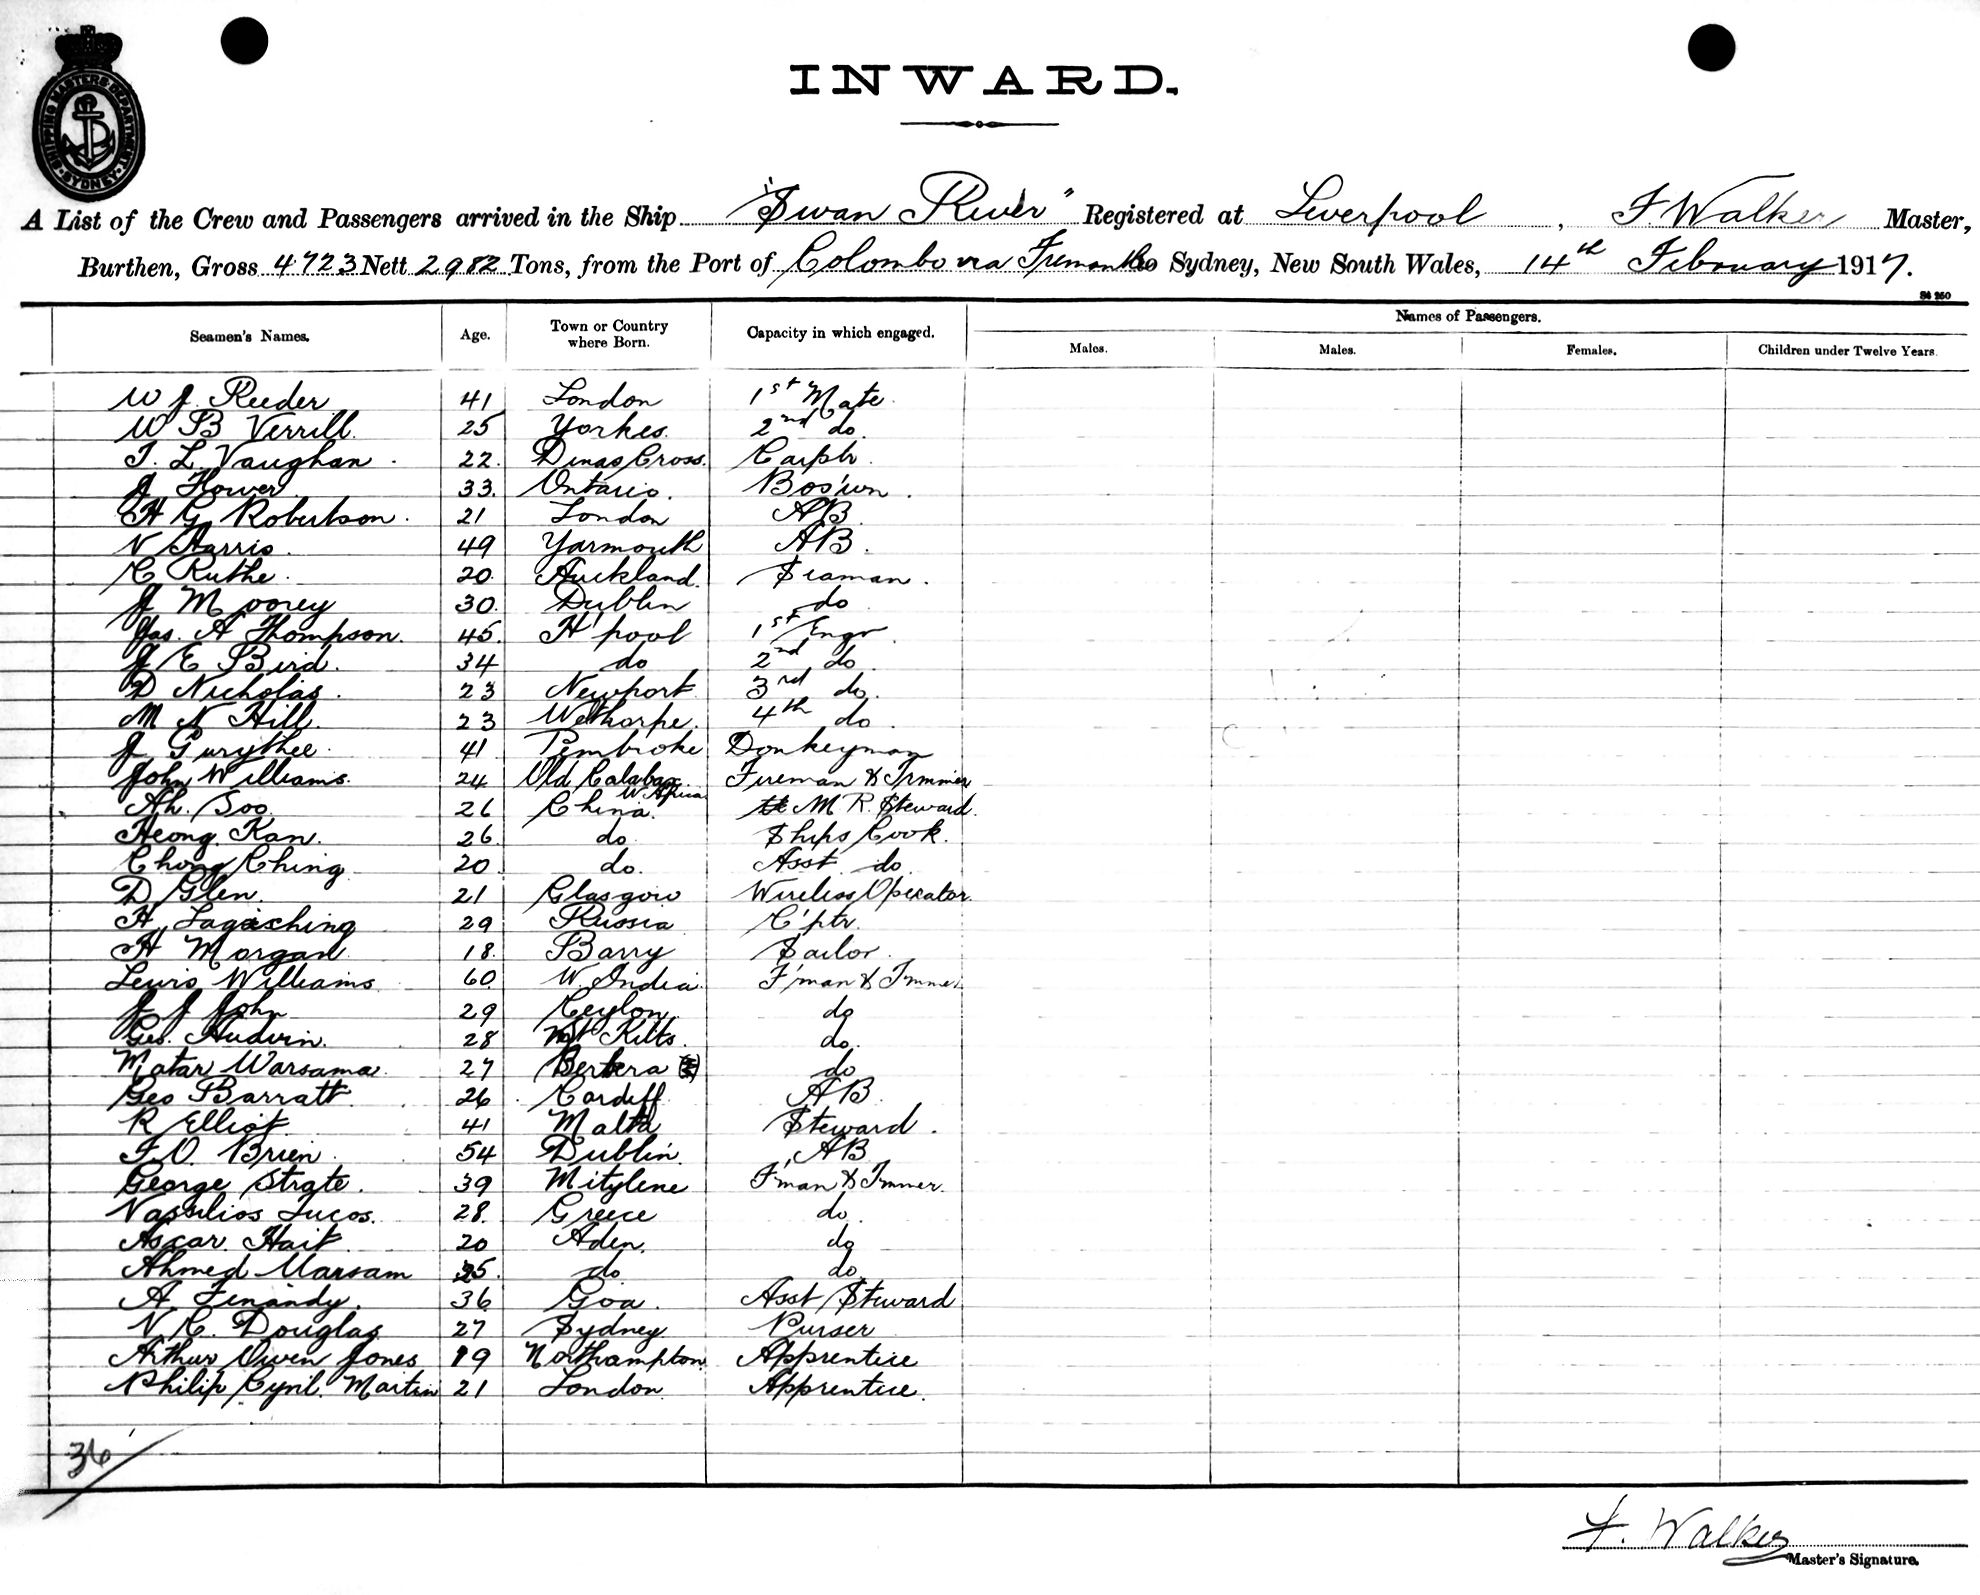 SHIPPING MASTERS DEPARTMENT SYDNEY
INWARD.
A List of the Crew and Passengers arrived in the Ship "Swan River" Registered at Liverpool, F Walker Master,
Burthen, Gross 4723 Nett 2982 Tons, from the Port of Colombo via Fremantle to Sydney, New South Wales, 14th February 1917.
St 250
Seamen's Names. Age. Town or Country where Born. Capacity in which engaged. Names of Passengers.
Males. Males. Females. Children under Twelve Years.
W J Reeder 41 London 1st Mate
W B Verrill 25 Yorkes. 2nd do.
T. L. Vaughan 22. Dinas Cross. Carptr.
J Flower 33. Ontario. Bos'un.
H G Robertson. 21 London AB
N Harris. 49 Yarmouth AB.
C Ruthe. 20. Auckland. Seaman.
J Mooney 30. Dublin do
Jas. A Thompson. 45. H'pool 1st Engr
J E Bird. 34 do 2nd do.
D Nicholas. 23 Newport 3rd do.
M N Hill. 23 4th do.
J 41 Pembroke Donkeyman
John Williams. 24 Old Calabar W Africa Fireman & Trmmer
Ah. Soo 26 China. M R. Steward
Heong Kan. 26. do. Ships Cook.
Chong Ching 20. do. Asst do.
D Glen. 21 Glasgow Wireless Operator.
H 29 Russia C'ptr.
H Morgan 18. Barry Sailor.
Lewis Williams 60. W. India. F'man & Tmmer
J J John 29 Ceylon. do
Geo. 28 St Kitts. do.
Matar Warsama. 27 Berbera do
Geo Barratt. 26 Cardiff AB.
R Elliot 41 Malta Steward.
T O. Brien. 54 Dublin. AB
George Strate. 39 Mitylene F'man & Tmmer.
Vassilios Lucos. 28. Greece do.
Ascar Hait 20 Aden. do
Ahmed Marsam 35. do do
A. Fenandy. 36 Goa. Asst Steward
N C. Douglas 27 Sydney Purser
Arthur Owen Jones 19 Northampton. Apprentice
Philip Cyril. Martin 21 London Apprentice.
36
F. Walker
Master's Signature.